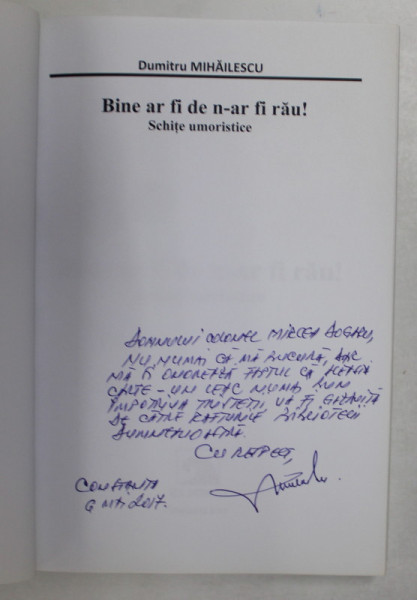 Dumitru MIHĂILESCU
Bine ar fi de n-ar fi rău!
Schițe umoristice
DOMNULUI COLONEL MIRCEA DOGARU,
NU NUMAI CĂ MĂ BUCURĂ, DAR
MĂ ȘI ONOREAZĂ FAPTUL CĂ ACEASTĂ
CARTE - UN LEAC NUMAI BUN
ÎMPOTRIVA TRISTEȚII VA FI GĂZDUITĂ
DE CĂTRE RAFTURILE BIBLIOTECII
DUMNEAVOASTRĂ.
CU RESPECT,
CONSTANȚA
MAI 2017.